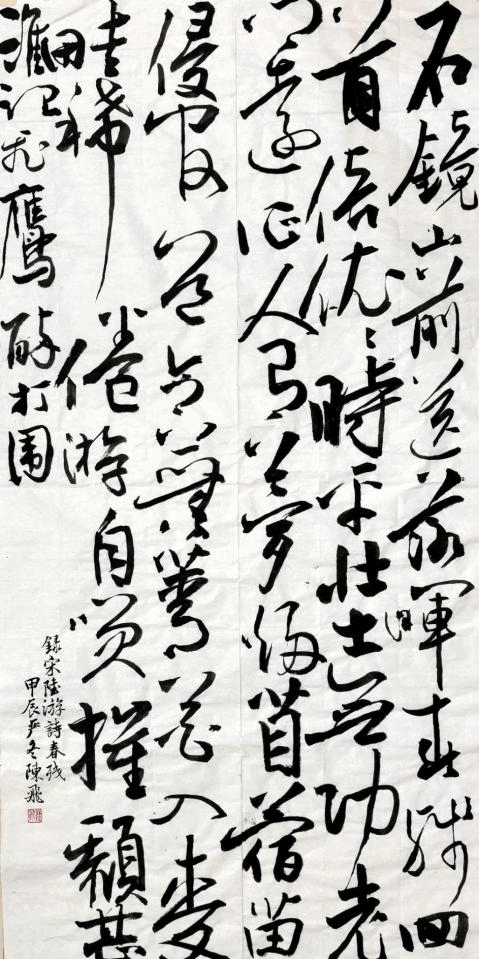 石鏡山前送落暉春残回
首倍依依時平壮士無功老
鄉遠征人有夢歸苜蓿苗
侵官道合蕪菁花入麦
畦稀倦游自笑摧頹甚
誰记飛鷹醉打圍
録宋陸游詩春残
甲辰严冬陳飛